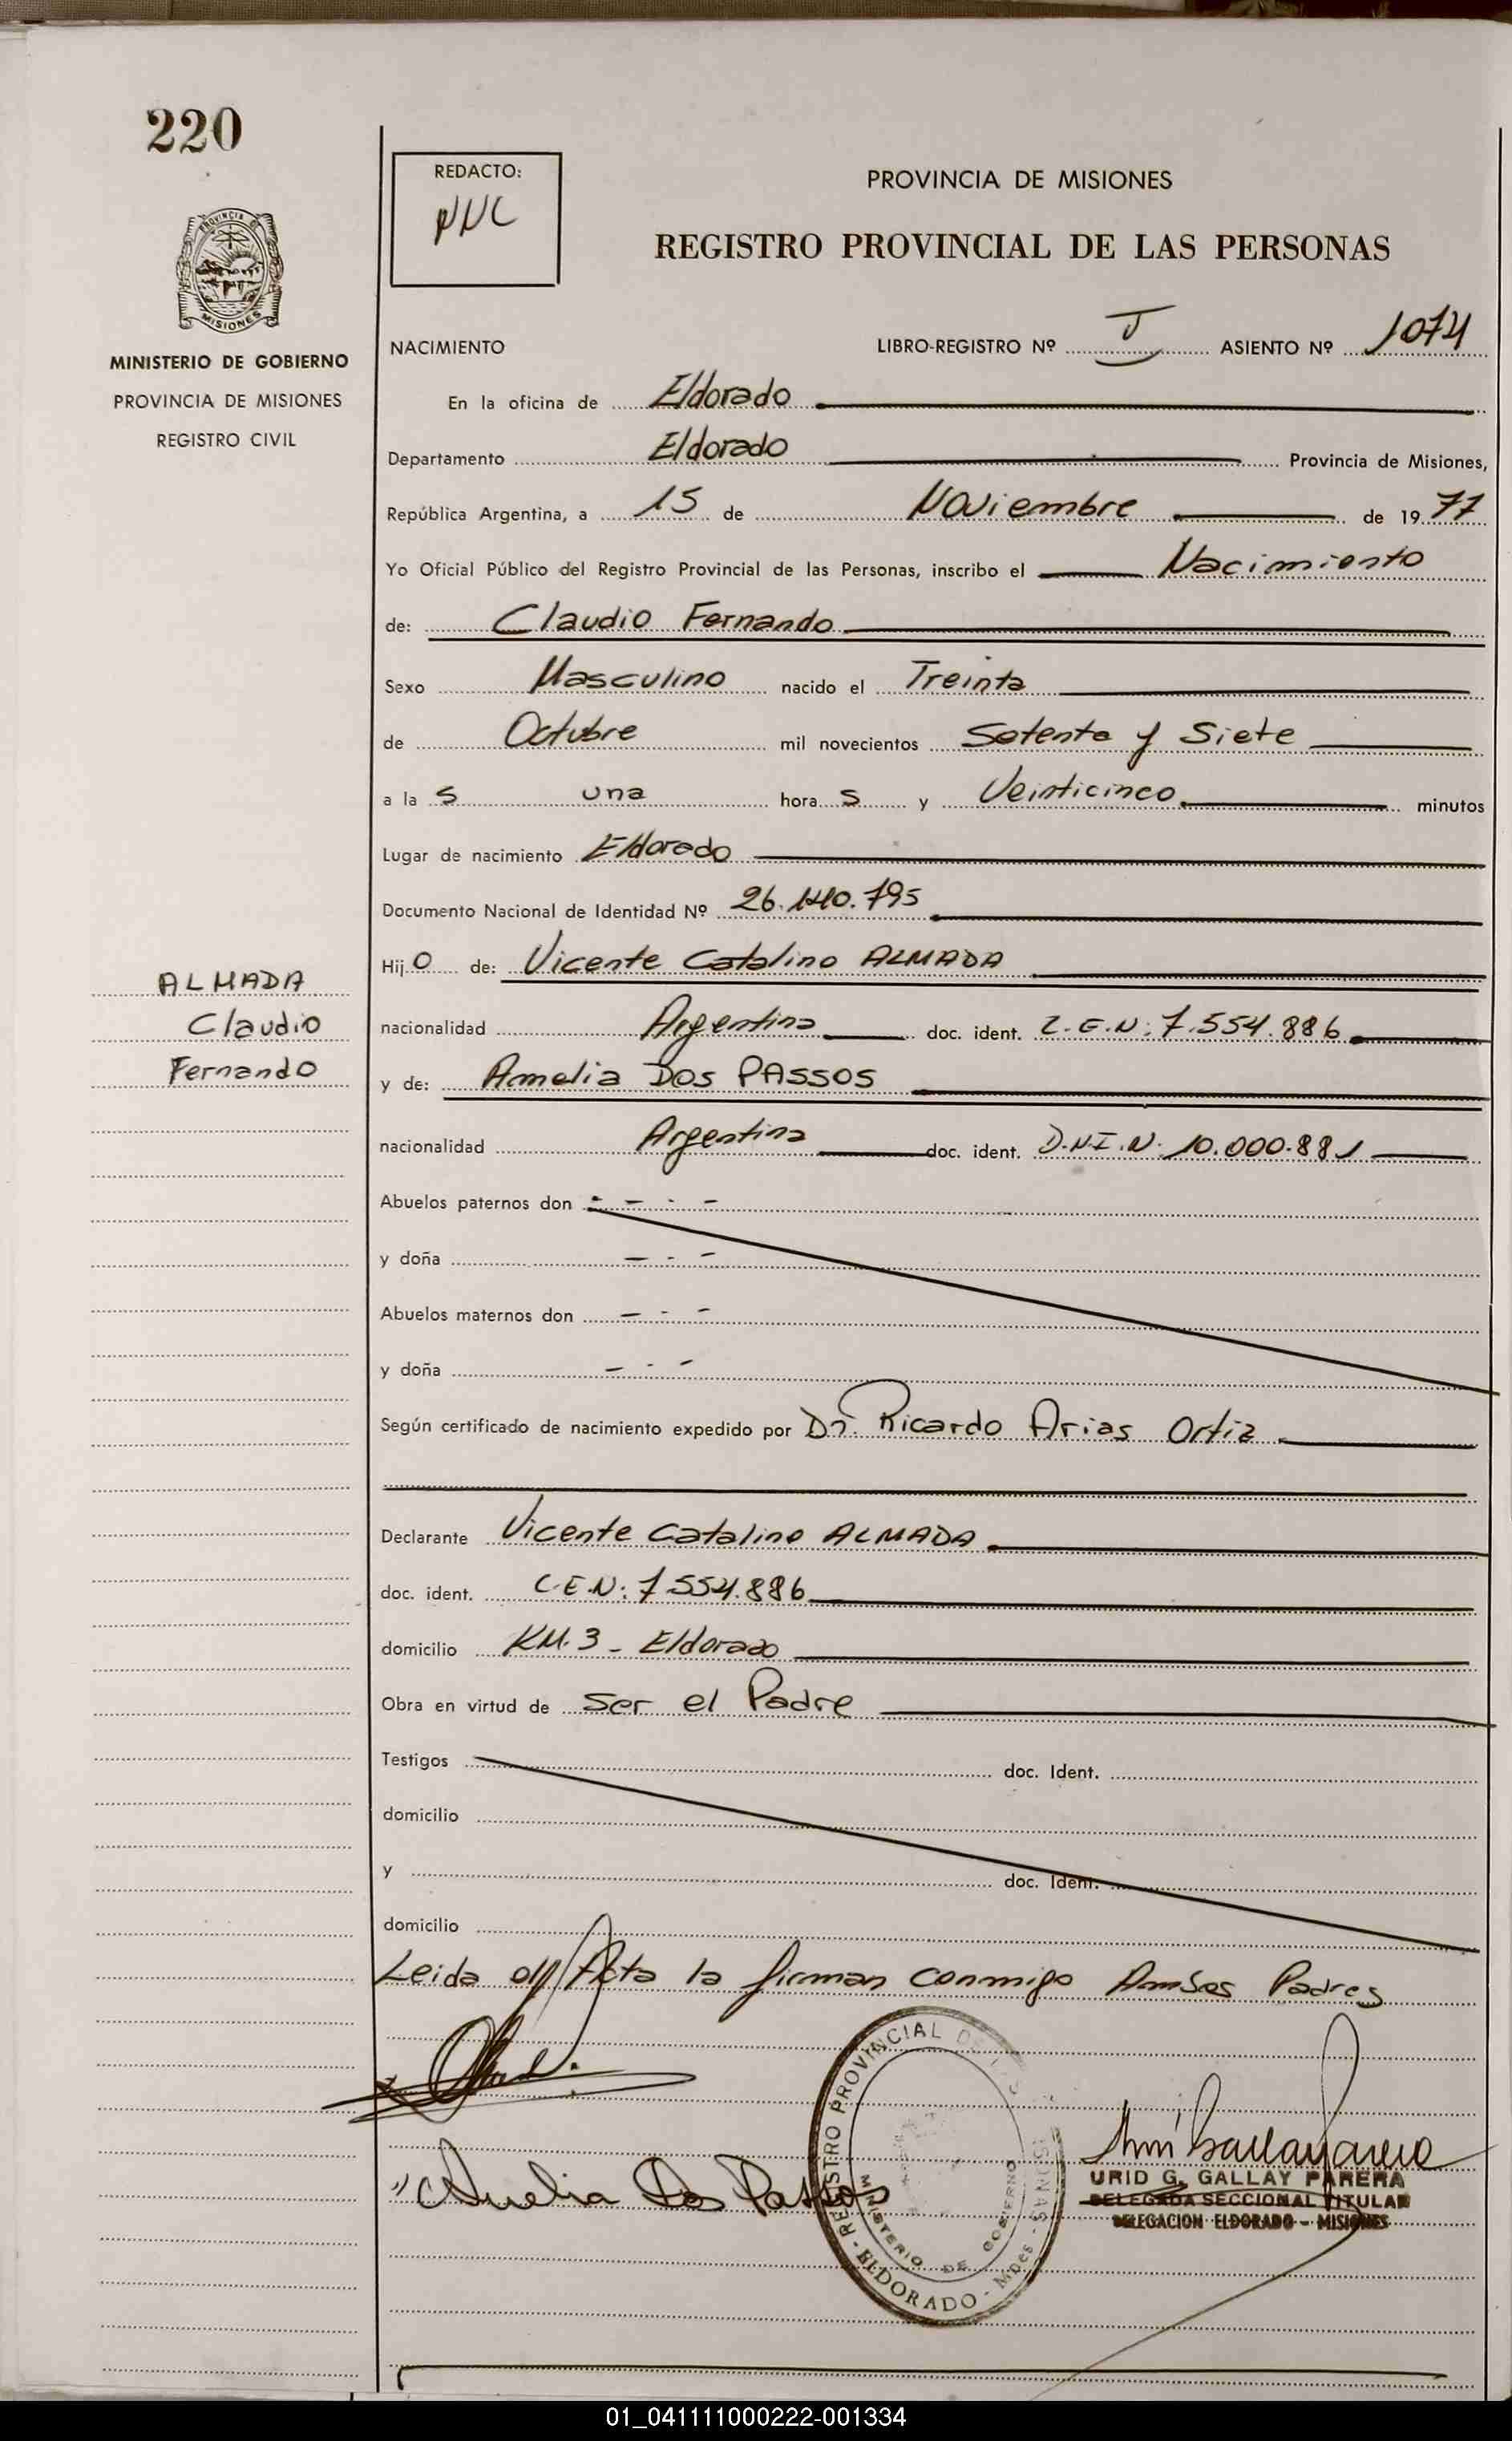 220
REDACTO:
NNC
PROVINCIA DE MISIONES
REGISTRO PROVINCIAL DE LAS PERSONAS
PROVINCIA DE
MISIONES
MINISTERIO DE GOBIERNO
PROVINCIA DE MISIONES
REGISTRO CIVIL
NACIMIENTO LIBRO-REGISTRO Nº I ASIENTO Nº 1074
En la oficina de Eldorado
Departamento Eldorado Provincia de Misiones,
República Argentina, a 15 de Noviembre de 1977
Yo Oficial Público del Registro Provincial de las Personas, inscribo el Nacimiento
de: Claudio Fernando
Sexo Masculino nacido el Treinta
de Octubre mil novecientos Setenta y Siete
a la s una hora s y Veinticinco minutos
Lugar de nacimiento Eldorado
Documento Nacional de Identidad Nº 26.140.795
Hij o de: Vicente Catalino ALMADA
ALMADA
Claudio
Fernando
nacionalidad Argentina doc. ident. L.E.N: 7.554.886
y de: Amelia DOS PASSOS
nacionalidad Argentina doc. ident. D.N.I.N: 10.000.881
Abuelos paternos don - - . -
y doña - . -
Abuelos maternos don - . -
y doña - . -
Según certificado de nacimiento expedido por Dr. Ricardo Arias Ortiz
Declarante Vicente Catalino ALMADA
doc. ident. L.E.N: 7.554.886
domicilio KM.3 - Eldorado
Obra en virtud de Ser el Padre
Testigos doc. Ident.
domicilio
y doc. Ident.
domicilio
Leida el Acta la firman conmigo Ambos Padres
Amelia Dos Passos
REGISTRO PROVINCIAL DE LAS PERSONAS - ELDORADO - Mnes -
MINISTERIO DE GOBIERNO
URID G. GALLAY PARERA
DELEGADA SECCIONAL TITULAR
DELEGACION ELDORADO - MISIONES
01_041111000222-001334